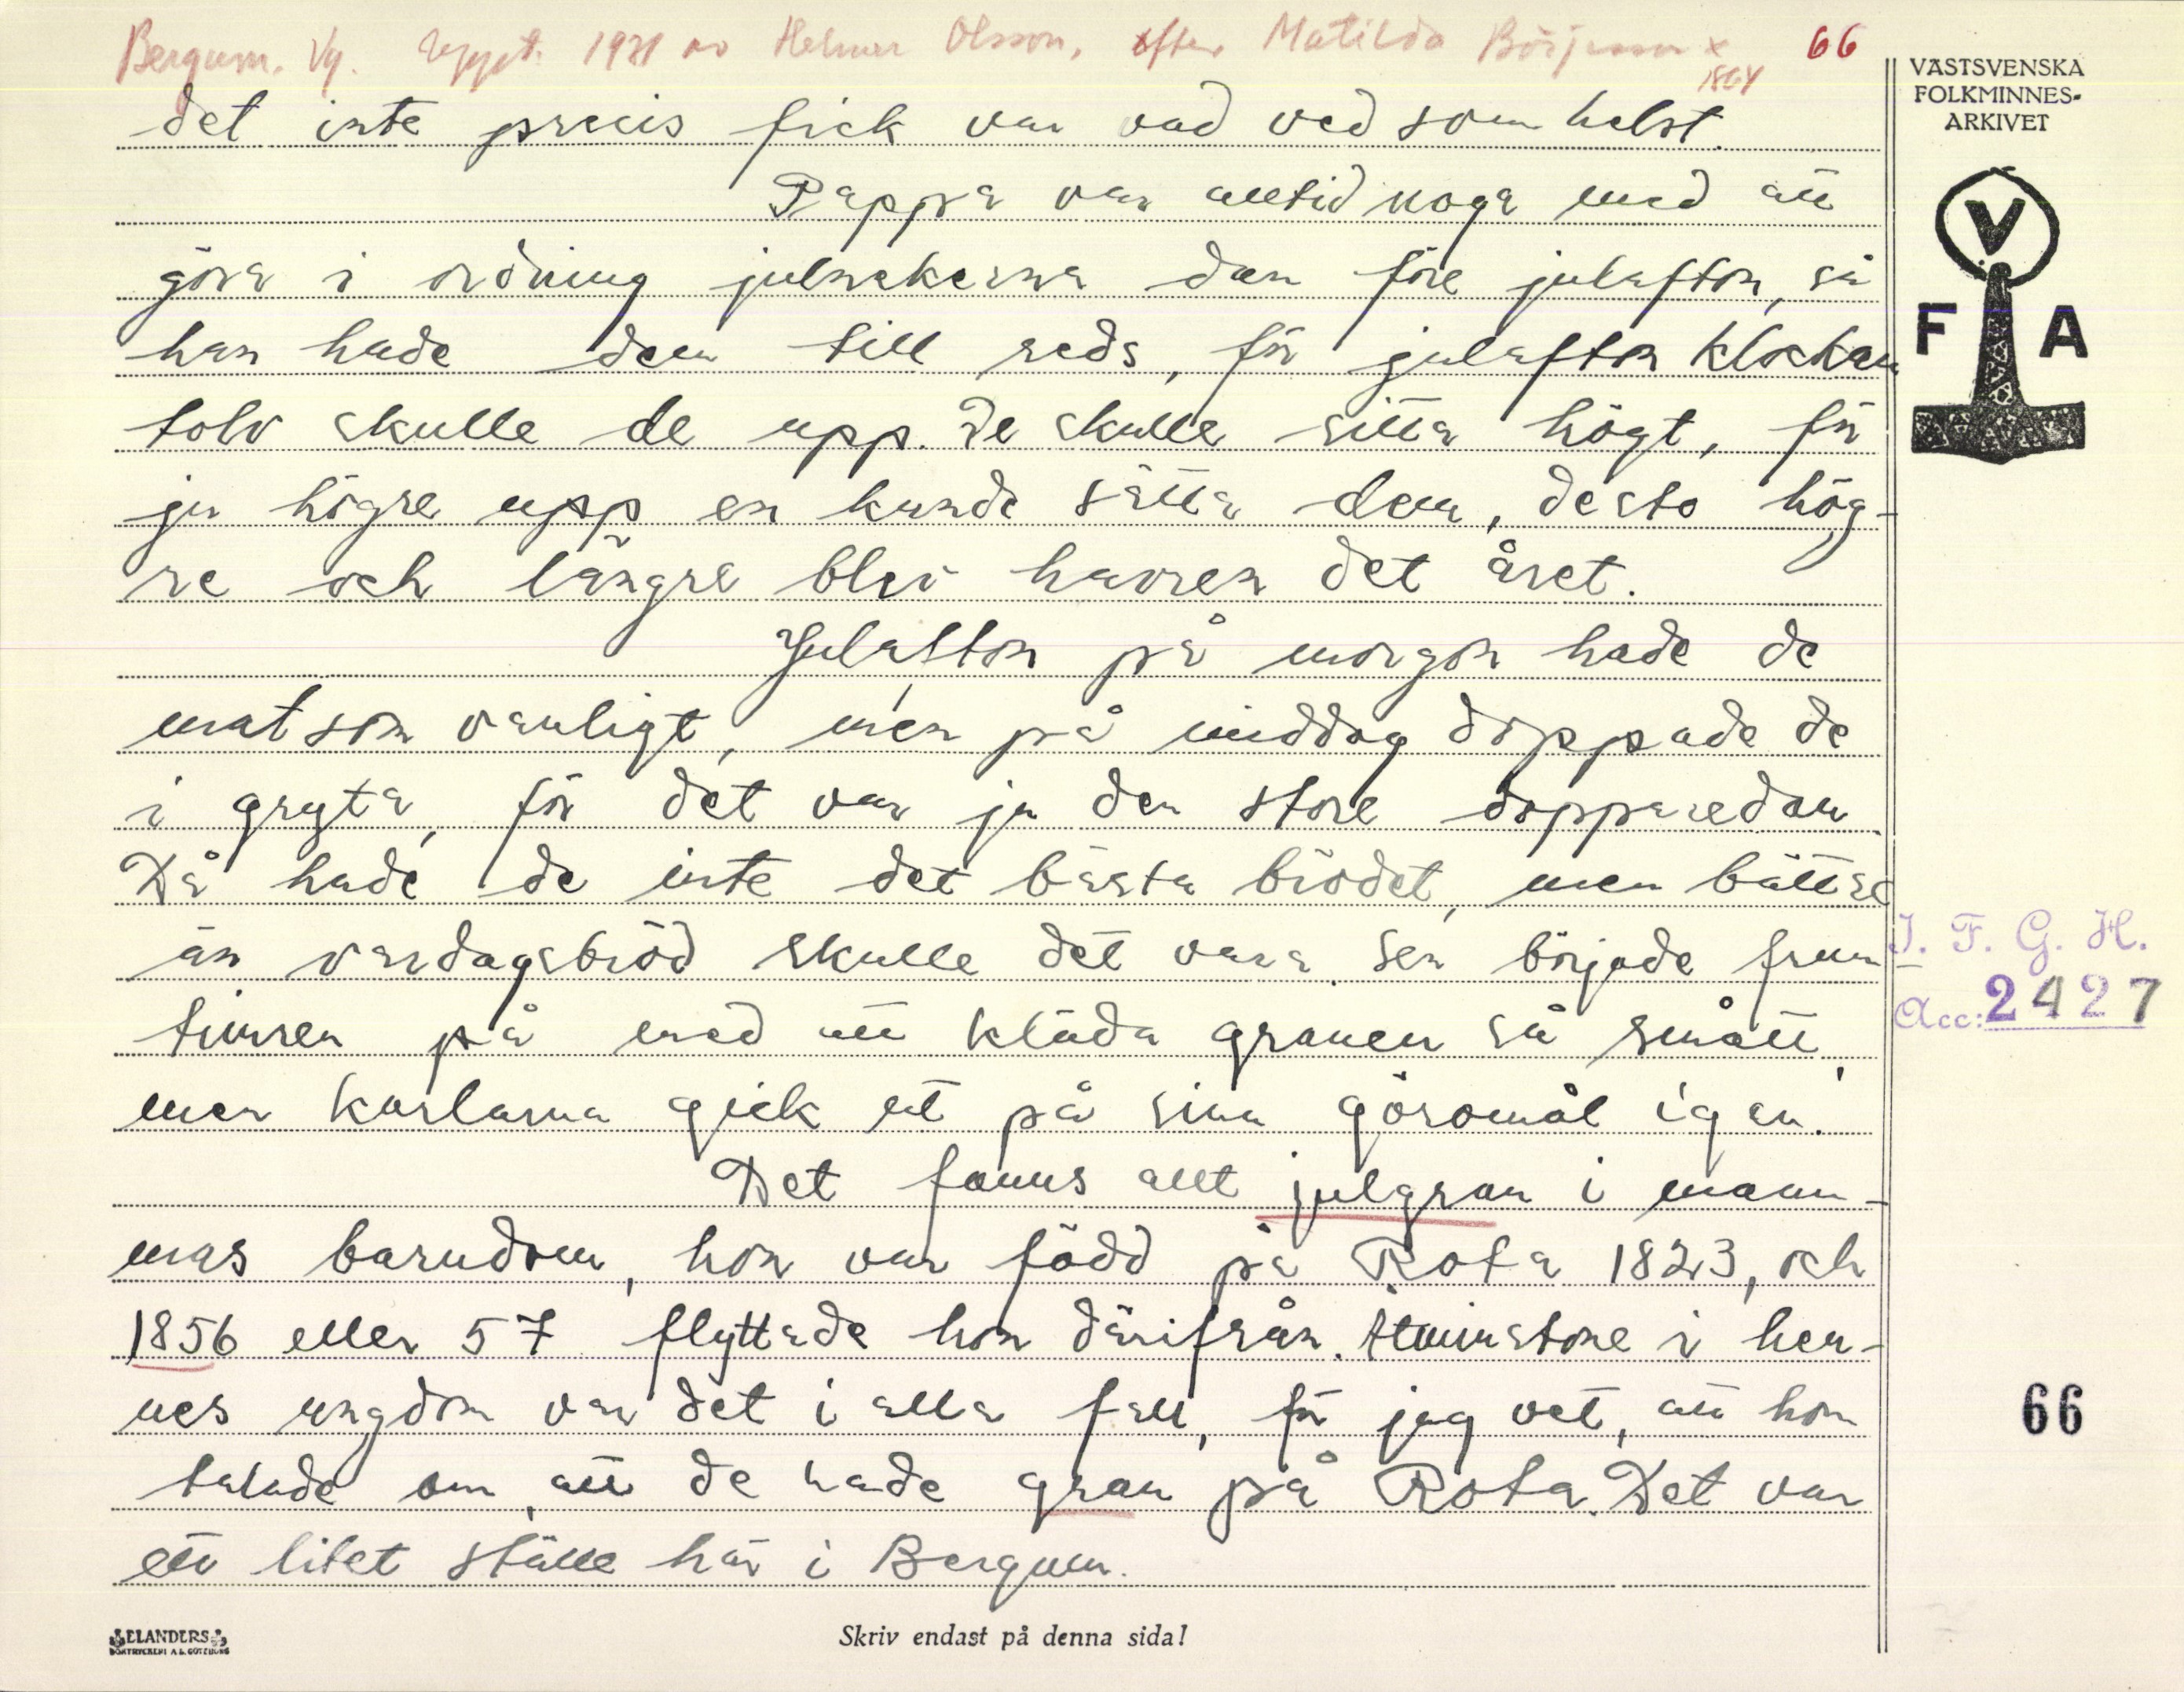 Bergum. Vg. Uppt. 1931 av Helmer Olsson, efter Matilda Börjesson x 66
1864
VÄSTSVENSKA
FOLKMINNES-
ARKIVET
det inte precis fick var vad ved som helst.
Pappa var alltid noga med att
göra i ordning julnekerna dan före julafton, så
han hade dem till reds, för julafton klockan
tolv skulle de upp. De skulle sitta högt, för
ju högre upp en kunde sätta dem, desto hög-
re och längre blev havren det året.
Julafton på morgon hade de
mat som vanligt, men på middag doppade de
i gryta, för det var ju den store dopparedan.
Då hade de inte det bästa brödet, men bättre
än vardagsbröd skulle det vara. Sen började frun
timren på med att kläda granen så smått,
men karlarna gick ut på sina göromål igen.
Det fanns allt julgran i mam-
mas barndom, hon var född på Rota 1823, och
1856 eller 57 flyttade hon därifrån. Åtminstone i hen-
nes ungdom var det i alla fall, för jag vet, att hon
talade om, att de hade gran på Rota. Det var
ett litet ställe här i Bergum.
V
F A
I. F. G. H.
Acc: 2427
66
ELANDERS
BOKTRYCKERI A.B. GÖTEBORG
Skriv endast på denna sida!